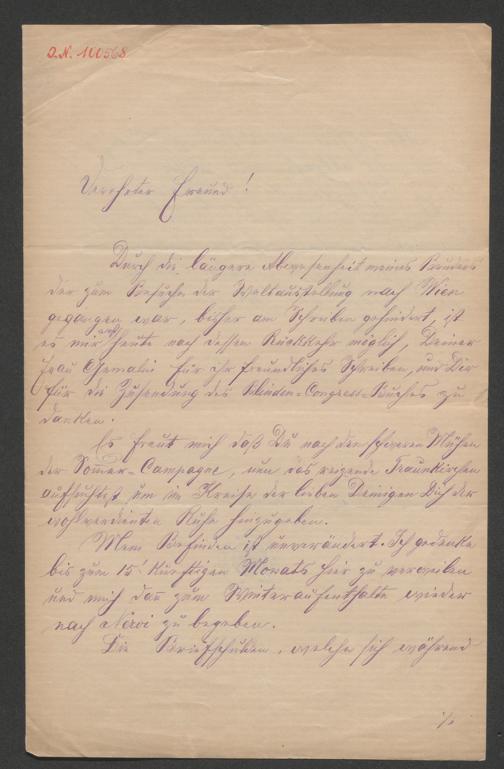 J.N. 100568
Verehrter Freund!
Durch die längere Abwesenheit meines Bruders
der zum Besuche der Weltausstellung nach Wien
gegangen war, bisher am Schreiben gehindert, ist
es mir erst heute nach dessen Rückkehr möglich, Deiner
Frau Gemalin für ihr freundliches Schreiben, und Dir
für die Zusendung des Blinden-Congress-Buches zu
danken.
Es freut mich daß Du nach den schweren Mühen
der Som̅er-Campagne, nun das reizende Traunkirchen
aufsuchtest um im Kreise der lieben Deinigen Dich der
wohlverdienten Ruhe hinzugeben.
Mein Befinden ist unverändert. Ich gedenke
bis zum 15. künftigen Monats hier zu verweilen
und mich dan̅ zum Winteraufenthalte wieder
nach Nervi zu begeben.
Die Briefschulden, welche sich während
./.